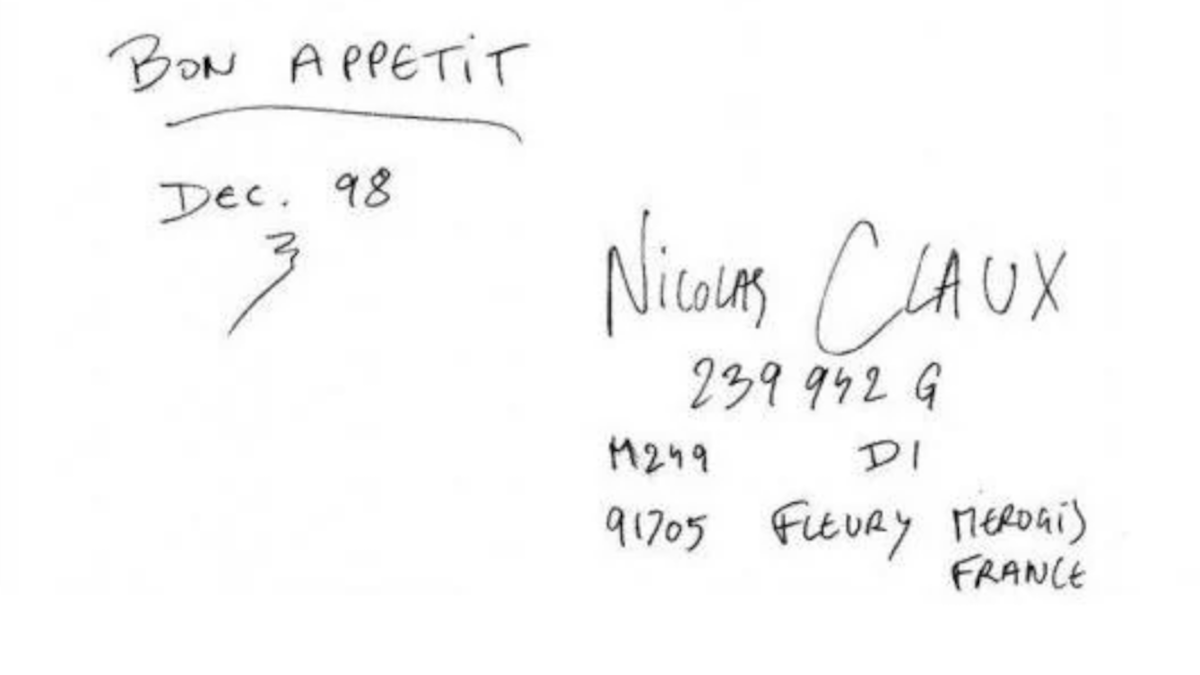 BON APPETIT
DEC. 98
NICOLAS CLAUX
239 942 G
M249 D1
91705 FLEURY MEROGIS
FRANCE